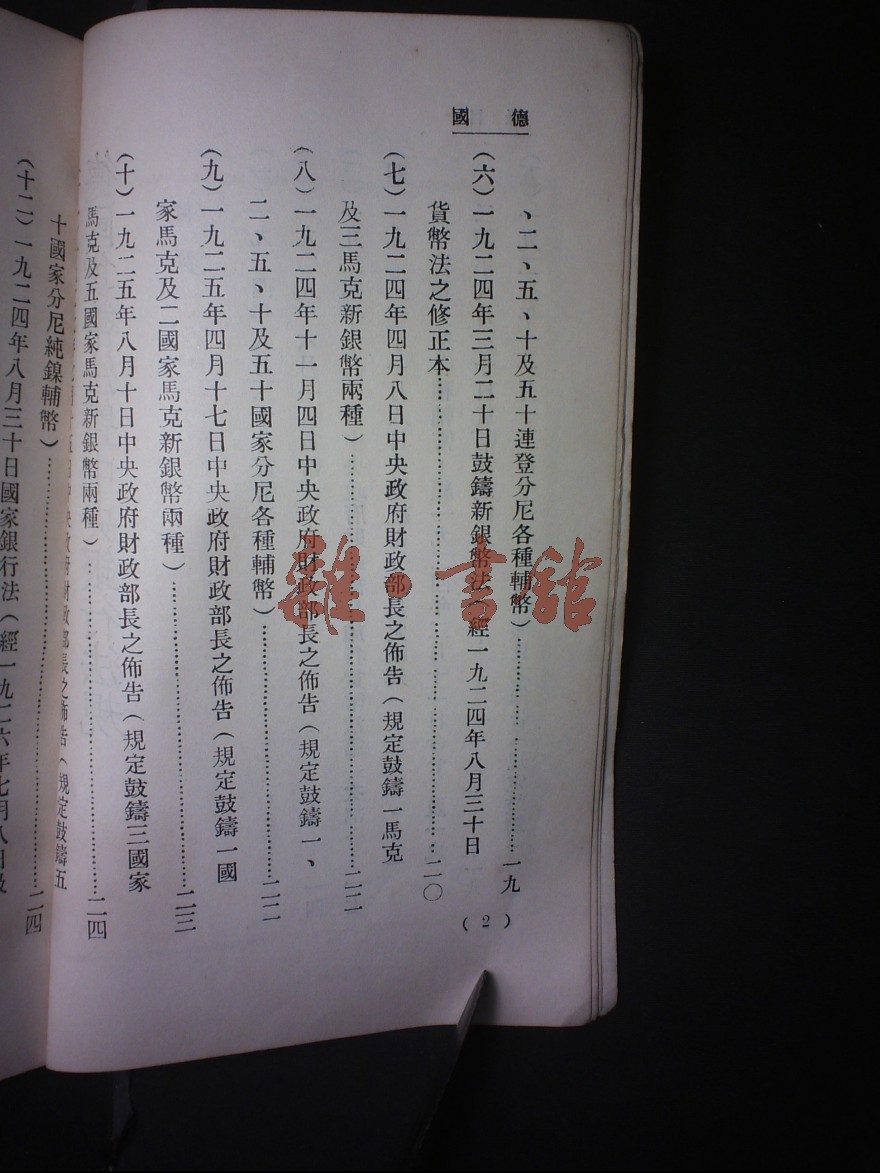 德國
、二、五、十及五十連登分尼各種輔幣）……一九
（六）一九二四年三月二十日鼓鑄新銀幣法 經一九二四年八月三十日
貨幣法之修正本……二〇
（七）一九二四年四月八日中央政府財政部長之佈告（規定鼓鑄一馬克
及三馬克新銀幣兩種）……二二
（八）一九二四年十一月四日中央政府財政部長之佈告（規定鼓鑄一、
二、五、十及五十國家分尼各種輔幣）……二二
（九）一九二五年四月十七日中央政府財政部長之佈告（規定鼓鑄一國
家馬克及二國家馬克新銀幣兩種）……二三
（十）一九二五年八月十日中央政府財政部長之佈告（規定鼓鑄三國家
馬克及五國家馬克新銀幣兩種）……二四
中央政府財政部長之佈告（規定鼓鑄五
十國家分尼純鎳輔幣）……二四
（十二）一九二四年八月三十日國家銀行法（經一九二六年七月八日及
(2)
雜·書館